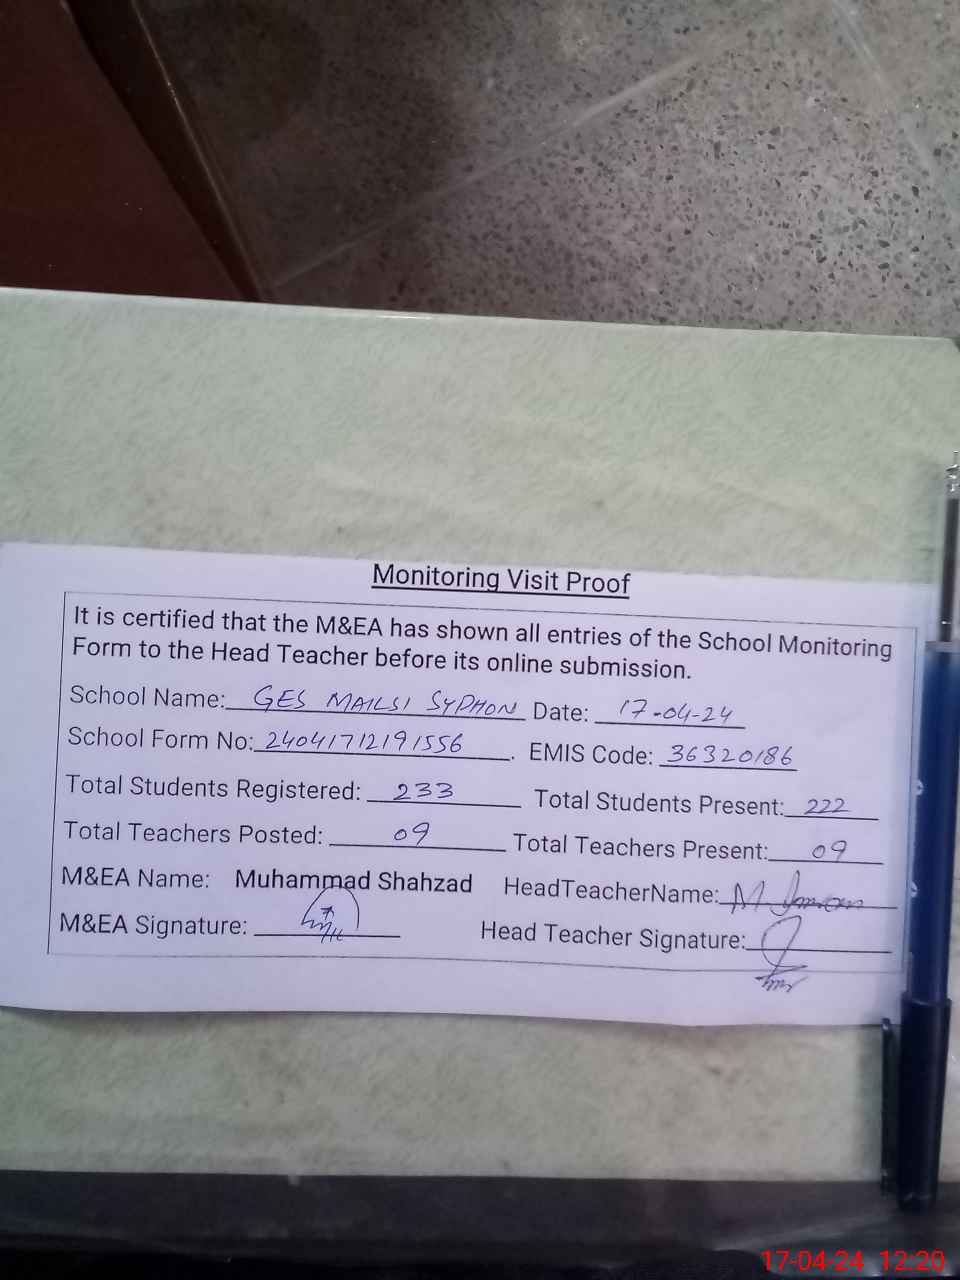 Monitoring Visit Proof
It is certified that the M&EA has shown all entries of the School Monitoring
Form to the Head Teacher before its online submission.
School Name: GES MAILSI SYPHON Date: 17-04-24
School Form No: 24041712191556. EMIS Code: 36320186
Total Students Registered: 233 Total Students Present: 222
Total Teachers Posted: 09 Total Teachers Present: 09
M&EA Name: Muhammad Shahzad HeadTeacherName: M Imran
M&EA Signature: Head Teacher Signature:
17-04-24 12:20